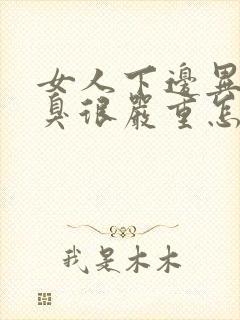 女人下邊異
臭很嚴重怎
我是木木